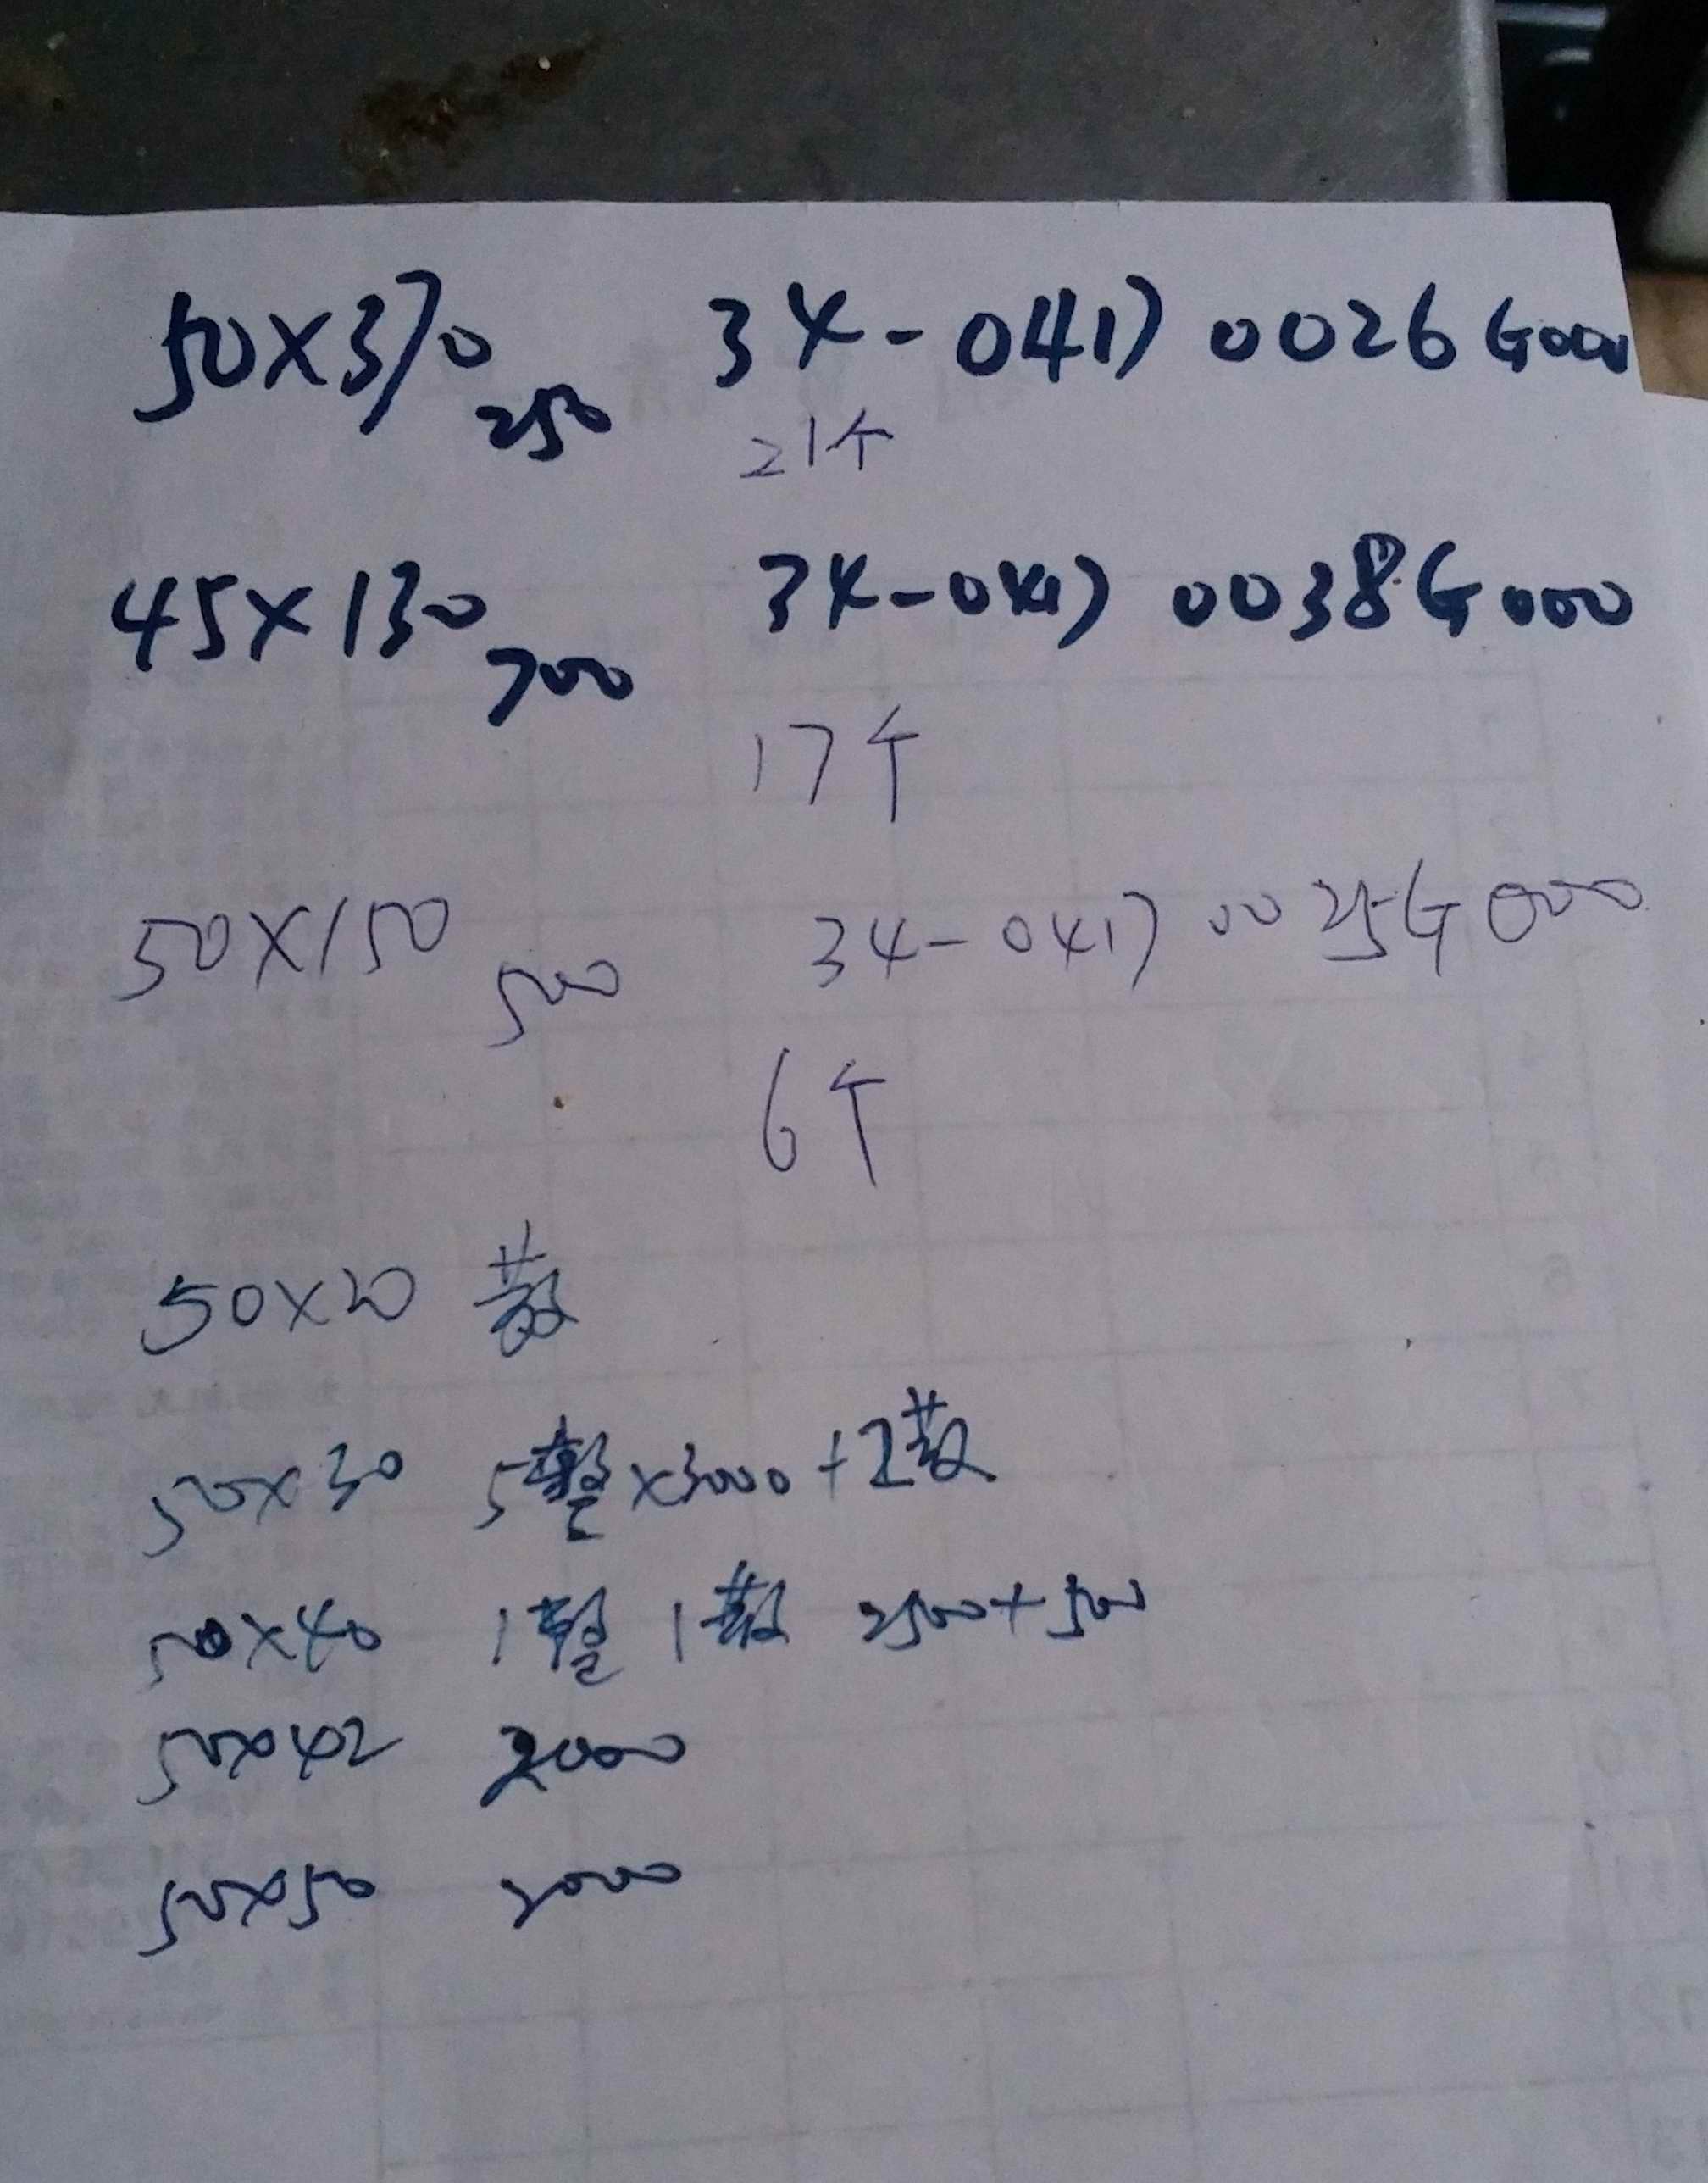 50×370 250 34-0417 0026G000
21个
45×130 700 34-0417 0038G000
17个
50×150 500 34-0417 0025G000
6个
50×20 散
50×30 5整×3000+2散
50×40 1整 1散 2500+500
50×42 2000
50×50 2000